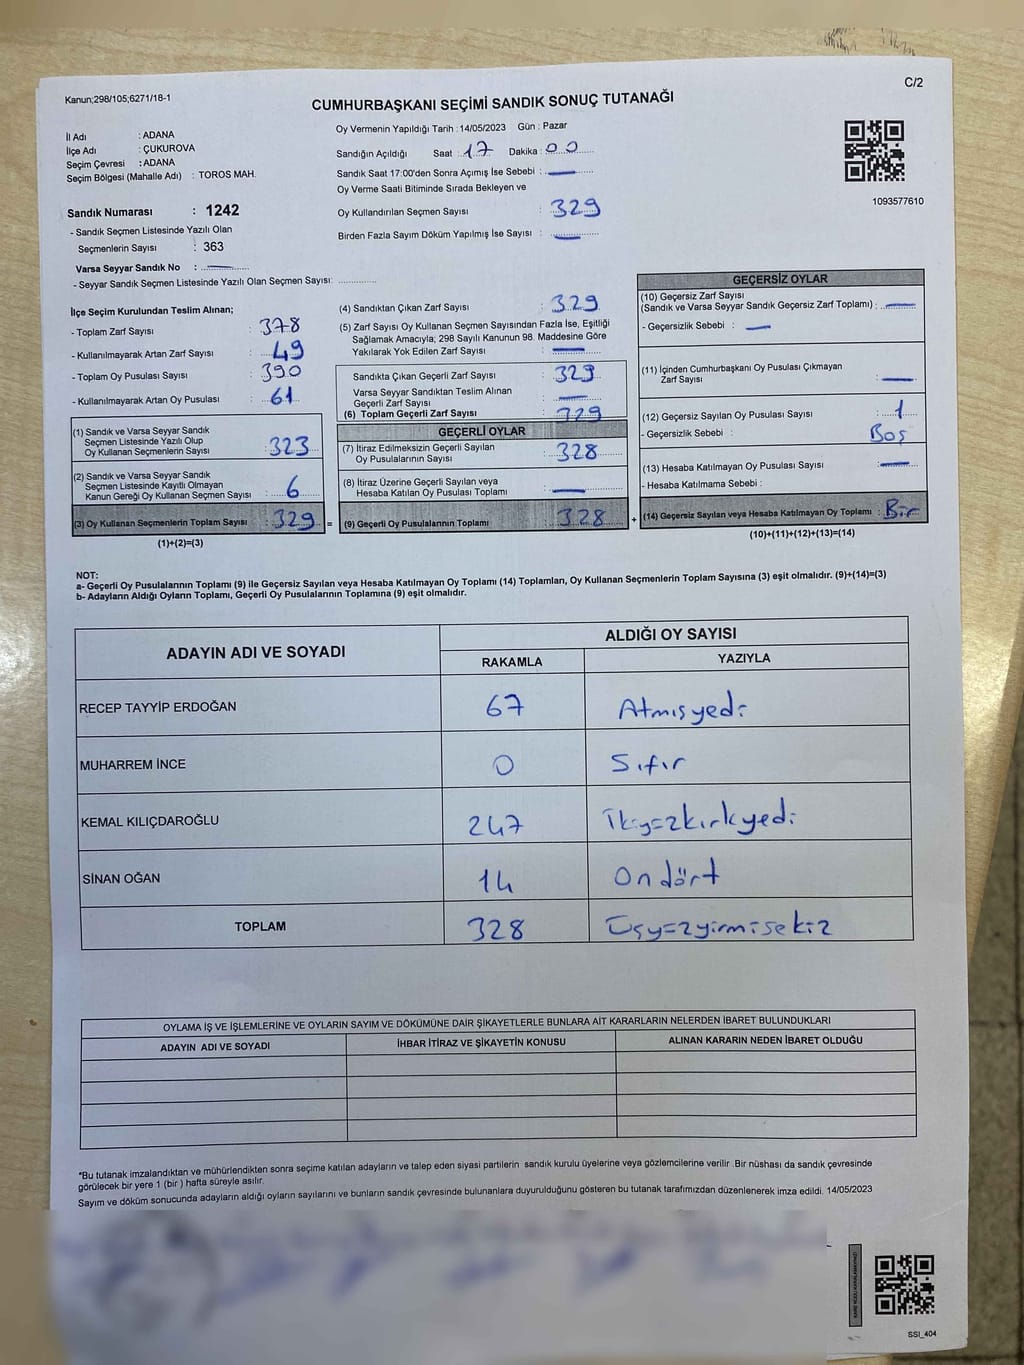 Kanun;298/105;6271/18-1
C/2
CUMHURBAŞKANI SEÇİMİ SANDIK SONUÇ TUTANAĞI
İl Adı : ADANA
İlçe Adı : ÇUKUROVA
Seçim Çevresi : ADANA
Seçim Bölgesi (Mahalle Adı) : TOROS MAH.
Sandık Numarası : 1242
- Sandık Seçmen Listesinde Yazılı Olan
Seçmenlerin Sayısı : 363
Varsa Seyyar Sandık No :
- Seyyar Sandık Seçmen Listesinde Yazılı Olan Seçmen Sayısı:
Oy Vermenin Yapıldığı Tarih : 14/05/2023 Gün : Pazar
Sandığın Açıldığı Saat : 17 Dakika : 00
Sandık Saat 17:00'den Sonra Açımış İse Sebebi :
Oy Verme Saati Bitiminde Sırada Bekleyen ve
Oy Kullandırılan Seçmen Sayısı : 329
Birden Fazla Sayım Döküm Yapılmış İse Sayısı :
1093577610
İlçe Seçim Kurulundan Teslim Alınan;
- Toplam Zarf Sayısı : 378
- Kullanılmayarak Artan Zarf Sayısı : 49
- Toplam Oy Pusulası Sayısı : 390
- Kullanılmayarak Artan Oy Pusulası : 61
(1) Sandık ve Varsa Seyyar Sandık
Seçmen Listesinde Yazılı Olup
Oy Kullanan Seçmenlerin Sayısı : 323
(2) Sandık ve Varsa Seyyar Sandık
Seçmen Listesinde Kayıtlı Olmayan
Kanun Gereği Oy Kullanan Seçmen Sayısı : 6
(3) Oy Kullanan Seçmenlerin Toplam Sayısı : 329 =
(1)+(2)=(3)
(4) Sandıktan Çıkan Zarf Sayısı : 329
(5) Zarf Sayısı Oy Kullanan Seçmen Sayısından Fazla İse, Eşitliği
Sağlamak Amacıyla; 298 Sayılı Kanunun 98. Maddesine Göre
Yakılarak Yok Edilen Zarf Sayısı :
Sandıkta Çıkan Geçerli Zarf Sayısı : 329
Varsa Seyyar Sandıktan Teslim Alınan
Geçerli Zarf Sayısı :
(6) Toplam Geçerli Zarf Sayısı : 329
GEÇERLİ OYLAR
(7) İtiraz Edilmeksizin Geçerli Sayılan
Oy Pusulalarının Sayısı : 328
(8) İtiraz Üzerine Geçerli Sayılan veya
Hesaba Katılan Oy Pusulası Toplamı :
(9) Geçerli Oy Pusulalarının Toplamı : 328 +
GEÇERSİZ OYLAR
(10) Geçersiz Zarf Sayısı
(Sandık ve Varsa Seyyar Sandık Geçersiz Zarf Toplamı) :
- Geçersizlik Sebebi :
(11) İçinden Cumhurbaşkanı Oy Pusulası Çıkmayan
Zarf Sayısı :
(12) Geçersiz Sayılan Oy Pusulası Sayısı : 1
- Geçersizlik Sebebi : Boş
(13) Hesaba Katılmayan Oy Pusulası Sayısı :
- Hesaba Katılmama Sebebi :
(14) Geçersiz Sayılan veya Hesaba Katılmayan Oy Toplamı : Bir
(10)+(11)+(12)+(13)=(14)
NOT:
a- Geçerli Oy Pusulalarının Toplamı (9) ile Geçersiz Sayılan veya Hesaba Katılmayan Oy Toplamı (14) Toplamları, Oy Kullanan Seçmenlerin Toplam Sayısına (3) eşit olmalıdır. (9)+(14)=(3)
b- Adayların Aldığı Oyların Toplamı, Geçerli Oy Pusulalarının Toplamına (9) eşit olmalıdır.
ADAYIN ADI VE SOYADI ALDIĞI OY SAYISI
RAKAMLA YAZIYLA
RECEP TAYYİP ERDOĞAN 67 Atmışyedi
MUHARREM İNCE 0 Sıfır
KEMAL KILIÇDAROĞLU 247 İkiyüzkırkyedi
SİNAN OĞAN 14 Ondört
TOPLAM 328 Üçyüzyirmisekiz
OYLAMA İŞ VE İŞLEMLERİNE VE OYLARIN SAYIM VE DÖKÜMÜNE DAİR ŞİKAYETLERLE BUNLARA AİT KARARLARIN NELERDEN İBARET BULUNDUKLARI
ADAYIN ADI VE SOYADI İHBAR İTİRAZ VE ŞİKAYETİN KONUSU ALINAN KARARIN NEDEN İBARET OLDUĞU
*Bu tutanak imzalandıktan ve mühürlendikten sonra seçime katılan adayların ve talep eden siyasi partilerin sandık kurulu üyelerine veya gözlemcilerine verilir .Bir nüshası da sandık çevresinde
görülecek bir yere 1 (bir ) hafta süreyle asılır.
Sayım ve döküm sonucunda adayların aldığı oyların sayılarını ve bunların sandık çevresinde bulunanlara duyurulduğunu gösteren bu tutanak tarafımızdan düzenlenerek imza edildi. 14/05/2023
SSI_404